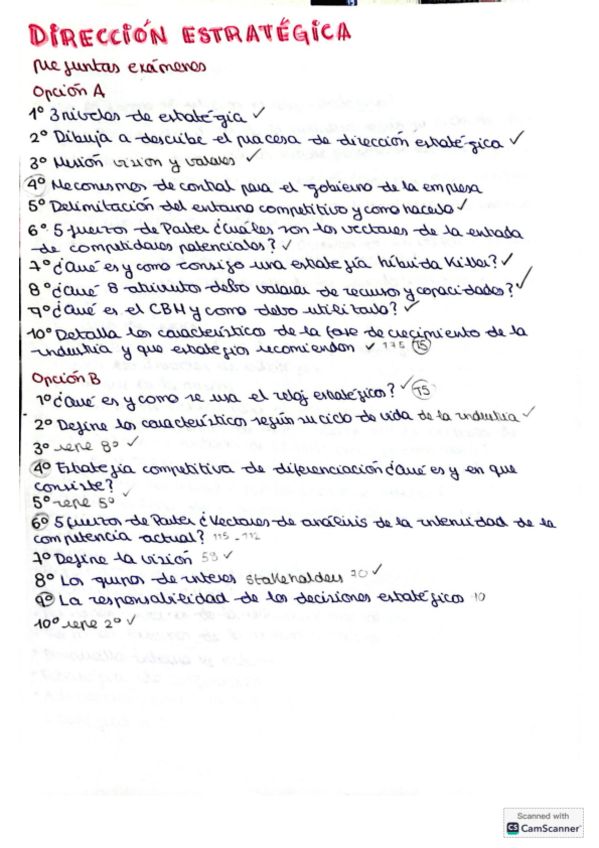 DIRECCIÓN ESTRATÉGICA
Preguntas exámenes
Opción A
1º 3 niveles de estratégia ✓
2º Dibuja a describe el proceso de dirección estratégica ✓
3º Misión visión y valores ✓
4º Mecanismos de control para el gobierno de la empresa
5º Delimitación del entorno competitivo y como hacerlo ✓
6º 5 fuerzas de Porter ¿Cuáles son los vectores de la entrada
de competidores potenciales? ✓
7º ¿Qué es y como consigo una estrategia híbrida Killer? ✓
8º ¿Qué 8 atributos debo valorar de recursos y capacidades? ✓
9º ¿Qué es el CBM y como debo utilizarlo? ✓
10º Detalla las características de la fase de crecimiento de la
industria y que estrategias recomiendan ✓ 175 (75)
Opción B
1º ¿Qué es y como se usa el reloj estratégico? ✓ (75)
2º Define las características según su ciclo de vida de la industria ✓
3º repe 8º ✓
4º Estrategia competitiva de diferenciación ¿Qué es y en que
consiste?
5º repe 5º ✓
6º 5 fuerzas de Porter ¿Vectores de análisis de la intensidad de la
competencia actual? 115 - 112
7º Define la visión 59 ✓
8º Los grupos de interes stakeholders 70 ✓
9º La responsabilidad de las decisiones estratégicas 10
10º repe 2º ✓
Scanned with
CS CamScanner